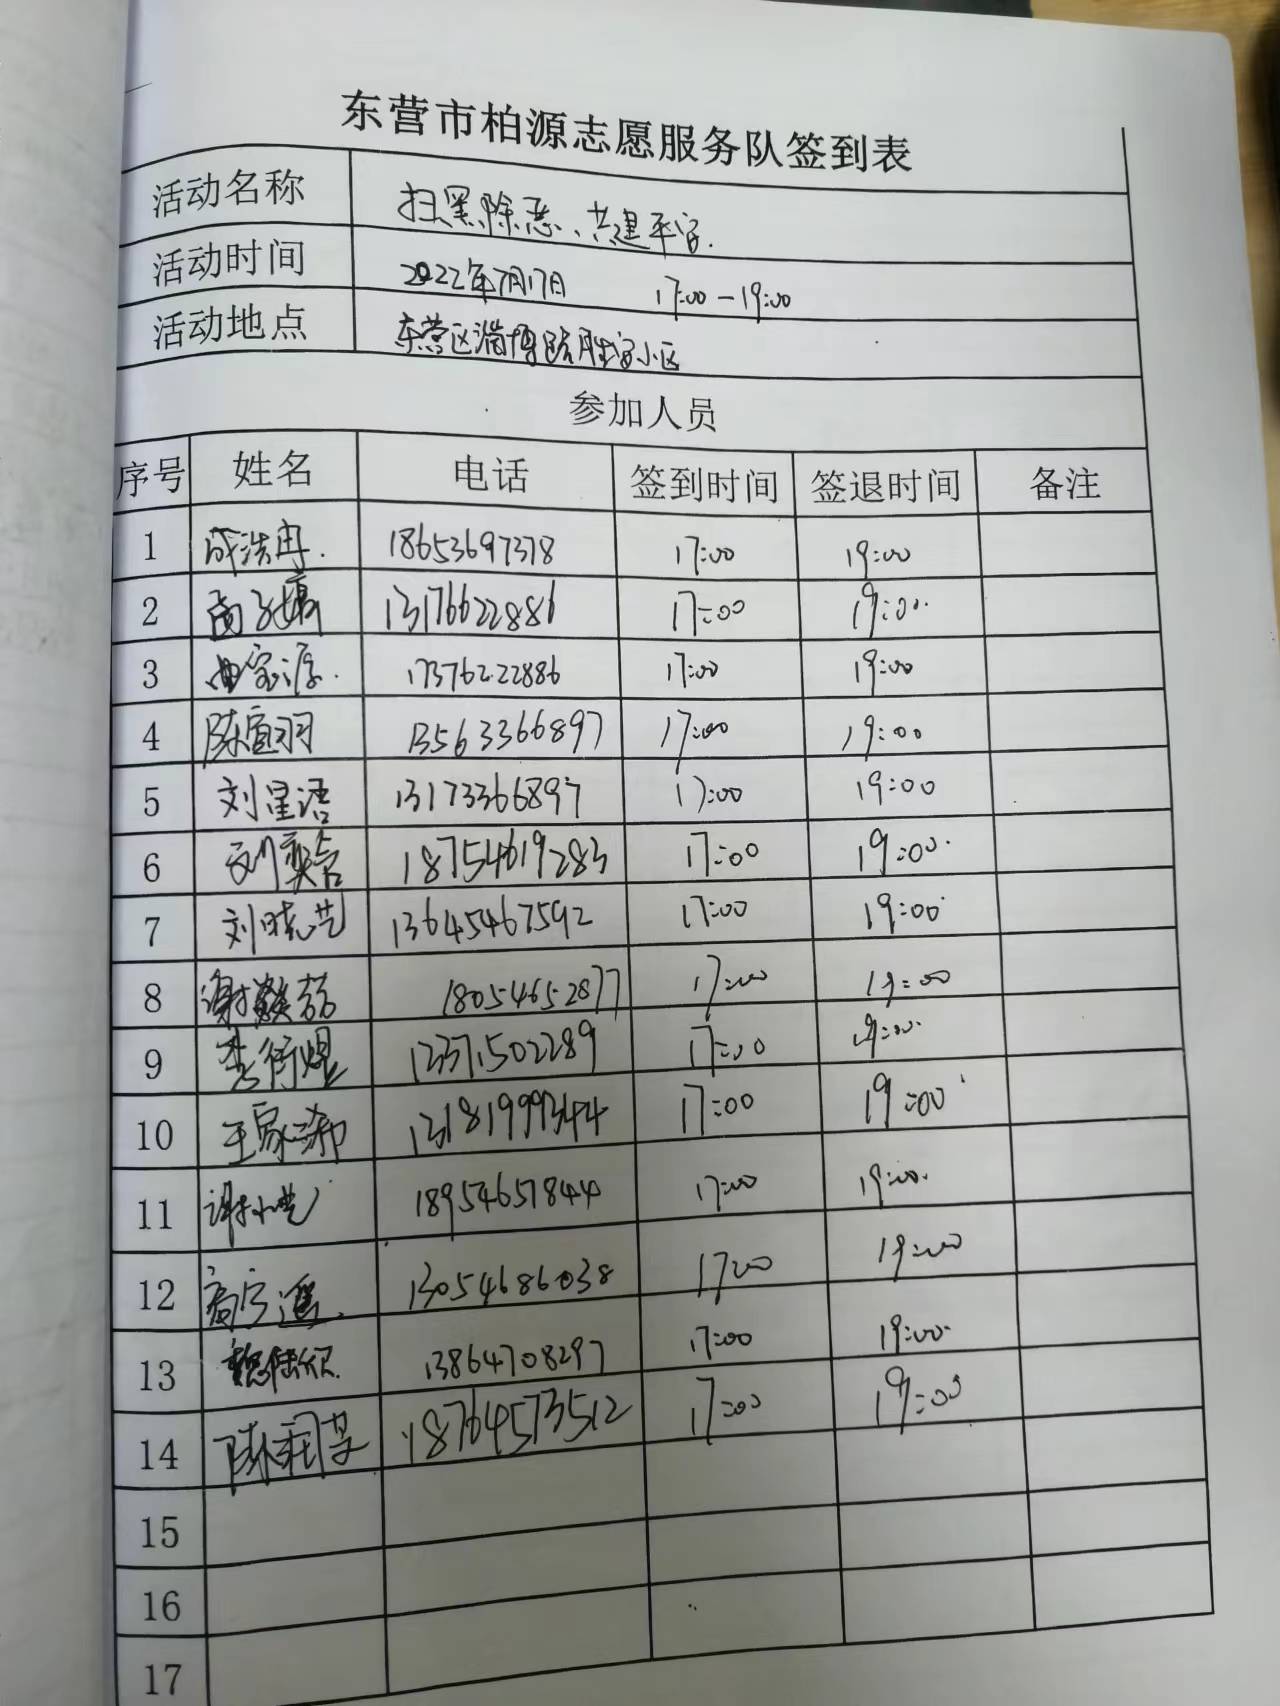 东营市柏源志愿服务队签到表
活动名称 扫黑除恶、共建平安.
活动时间 2022年7月17日 17:00-19:00
活动地点 东营区淄博路胜安小区
参加人员
序号 姓名 电话 签到时间 签退时间 备注
1 成浩冉. 18653697378 17:00 19:00
2 13176622886 17:00 19:00
3 曲宝源. 17376222886 17:00 19:00
4 陈宣羽 13563366897 17:00 19:00
5 刘星语 13173366897 17:00 19:00
6 刘奕含 18754619283 17:00 19:00
7 刘晓艺 13645467592 17:00 19:00
8 18054652877 17:00 19:00
9 李衍煜 12371502289 17:00 19:00
10 王家浠 13181999344 17:00 19:00
11 谢小艺 18954657844 17:00 19:00
12 13054686038 17:00 19:00
13 13864708297 17:00 19:00
14 18764573512 17:00 19:00
15
16
17